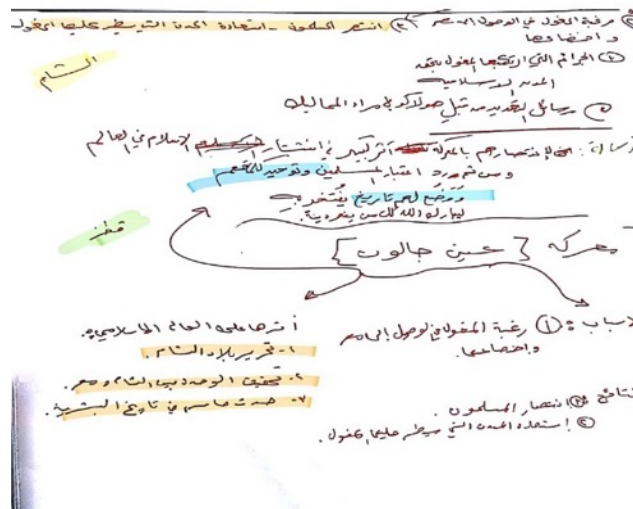 ① رغبة المغول في الوصول الى مصر واخضاعها
② انتصر المسلمون - استعادة المدن التي سيطر عليها المغول
الشام
② الجرائم التي ارتكبها المغول بحق
المدن الاسلامية
③ رسائل التهديد من قبل هولاكو لأمراء المماليك
لإنتصارهم بالمعركة أثر كبير في انتشار الإسلام في العالم
ومن ثم اعتبار المسلمين وتوحيد كلمتهم
ووضع لهم تاريخ يُفتخر به
قطز
معركة {عين جالوت}
الاسباب : ① رغبة المغول في الوصول إلى مصر
واخضاعها.
أثرها على العالم الاسلامي:
١- تحرير بلاد الشام.
٢- تحقيق الوحدة بين الشام ومصر.
٣- حدث حاسم في تاريخ البشرية.
النتائج : ① انتصار المسلمون.
② إستعادة المدن التي سيطر عليها المغول.